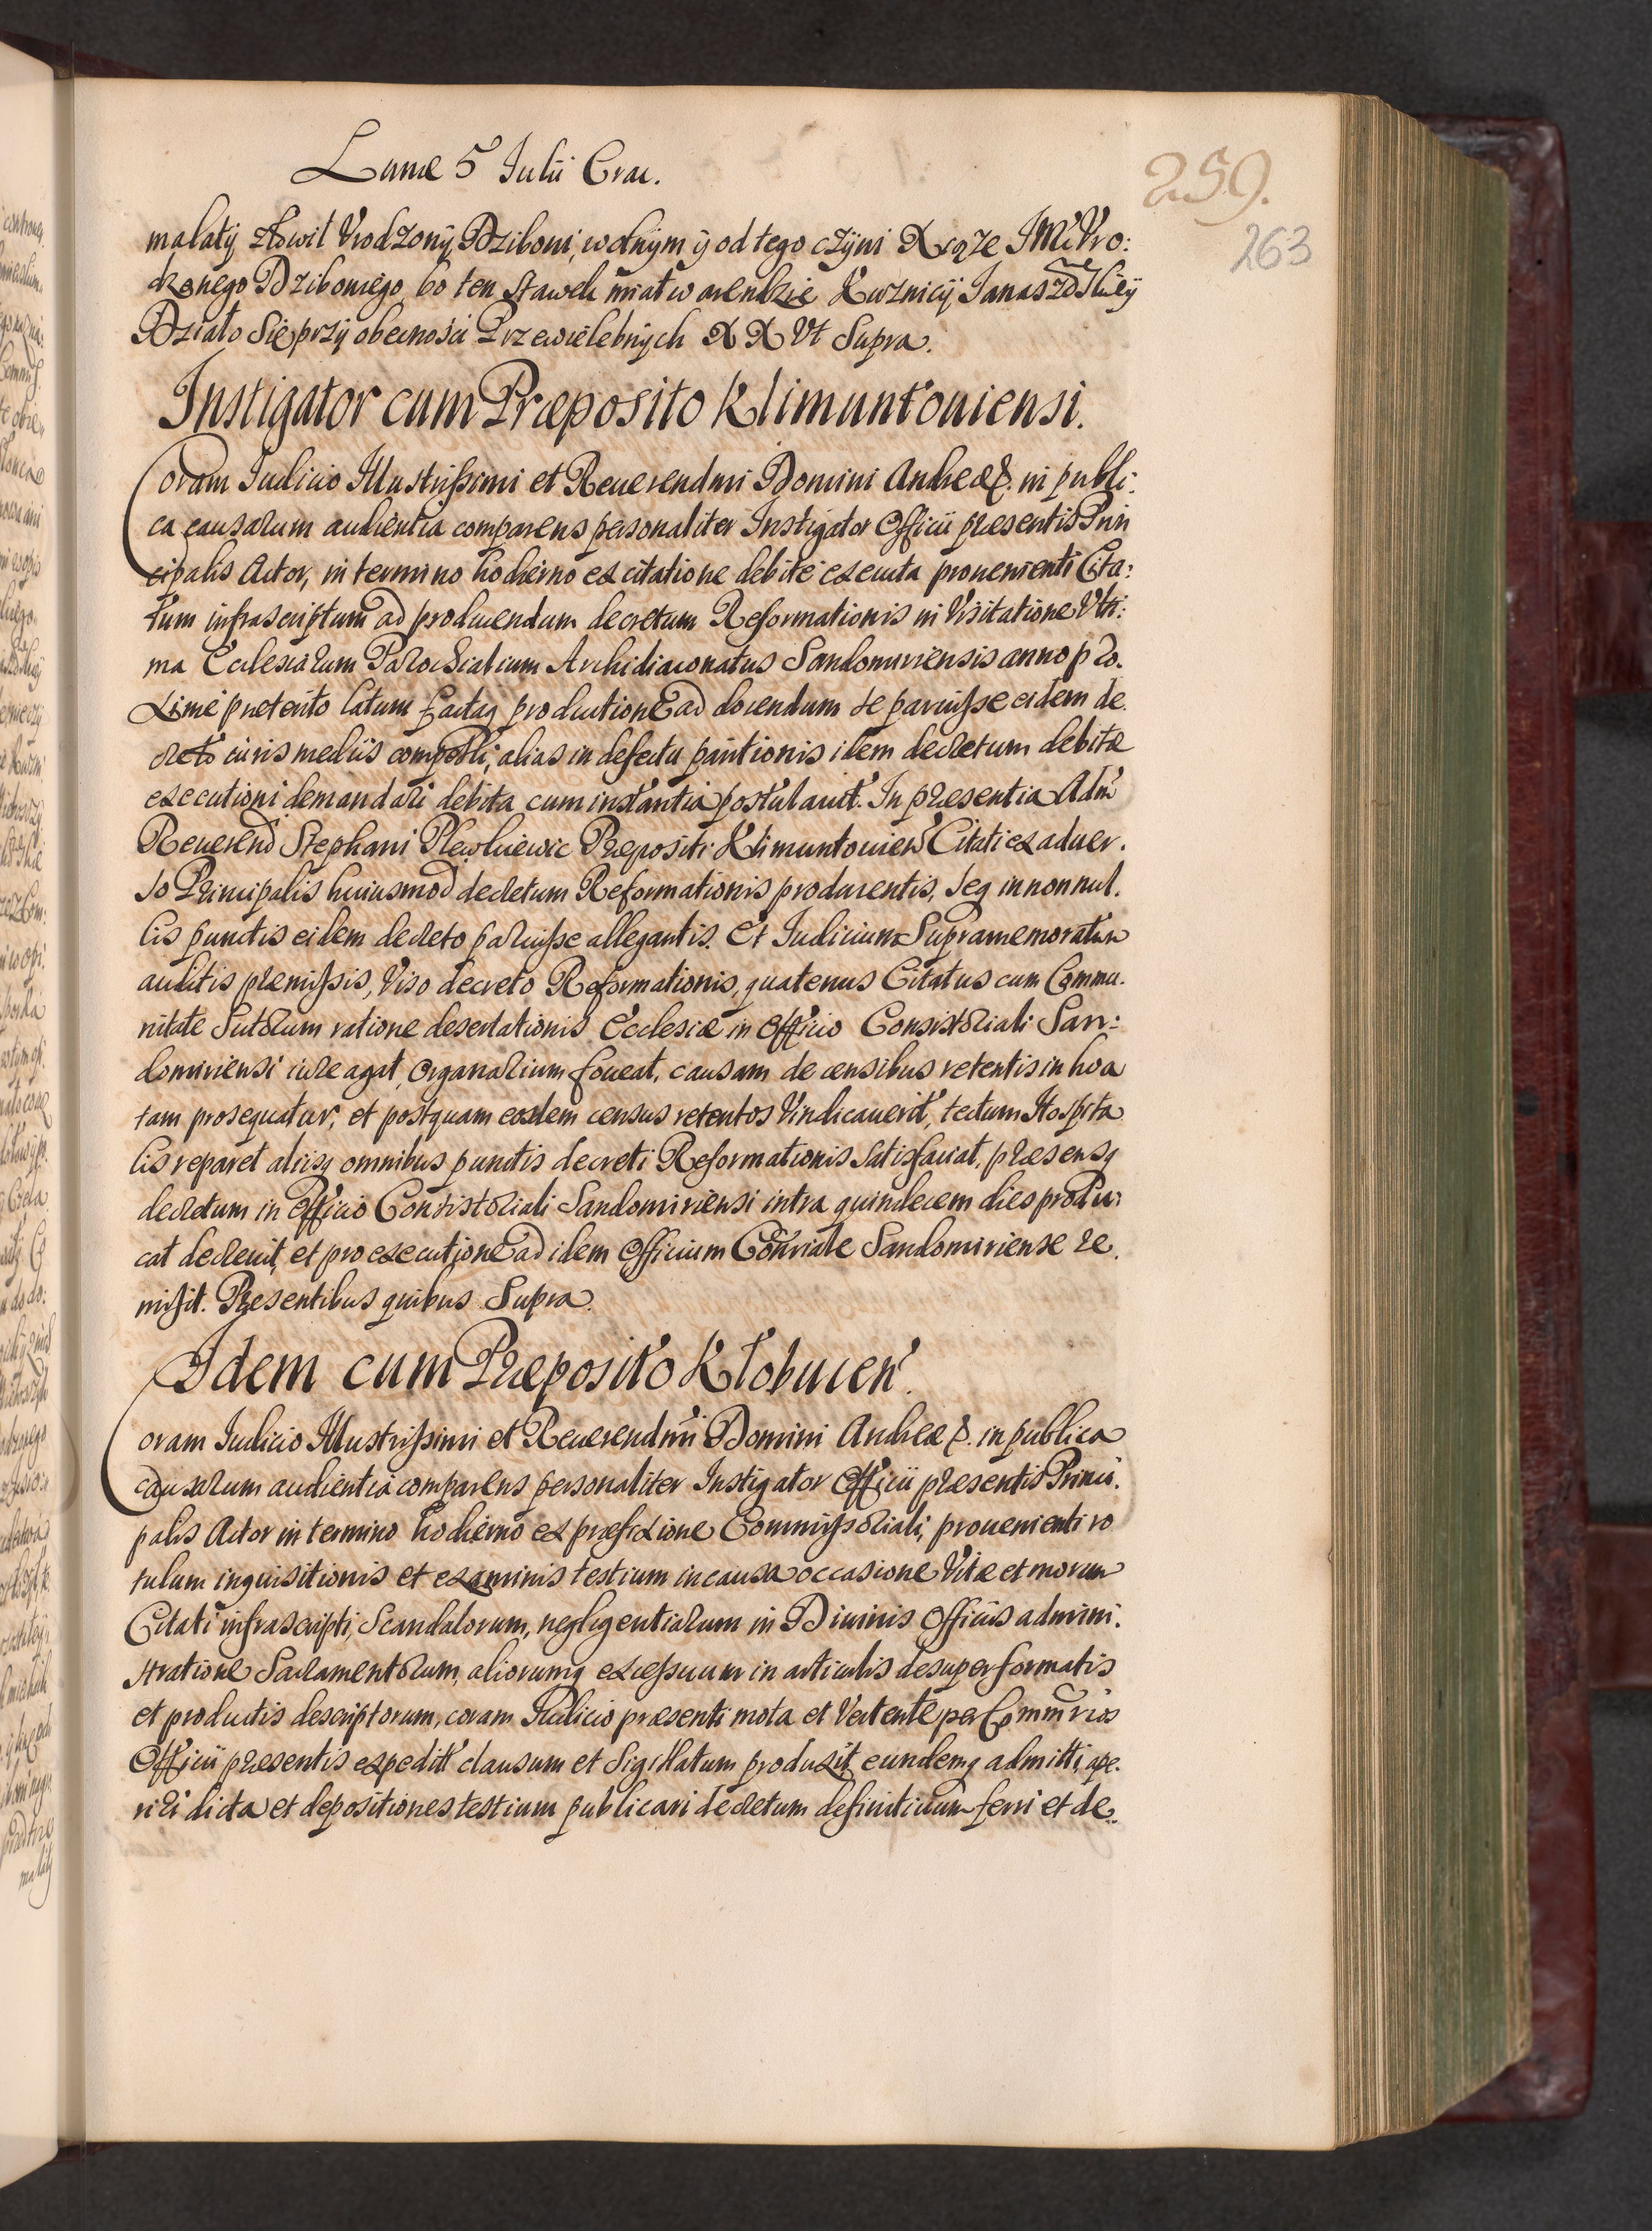 Lunæ 5 Iulii Crac.
259.
263
małaty złowił Vrodzony Dziboni, wolnym y od tego czyni Xcąże IMci Vro:
dzonego Dziboniego, bo ten stawek miał w arendzie Kuznicy Ianaszowskiey
Działo się przy obecności Przewielebnych X X Vt Supra.
Instigator cum Præposito Klimuntouiensi.
Coram Iudicio Illustrissimi et Reuerendmi Domini Andreæ &. in publi:
ca causarum audientia comparens personaliter Instigator Officii præsentis Prin
cipalis Actor, in termino hodierno ex citatione debite executa proueniente Cita:
tum infrascriptum ad producendum decretum Reformationis in Visitatione Vlti:
ma Ecclesiarum Parochialium Archidiaconatus Sandomiriensis anno pro.
xime preterito latum factaq productione ad docendum se paruisse eidem de.
creto iuris mediis compelli, alias in defectu paritionis idem decretum debitæ
executioni demandari debita cum instantia postulauit. In præsentia Adm
Reuerend Stephani Plewkiewic Præpositi Klimuntouien Citati ex aduer.
so Principalis huiusmod decretum Reformationis producentis, seq in nonnul.
lis punctis eidem decreto paruisse allegantis. Et Iudicium Supramemoratum
auditis præmissis, Viso decreto Reformationis, quatenus Citatus cum Commu.
nitate Sutorum ratione desertationis Ecclesiæ in Officio Consistoriali San:
domiriensi iure agat, Organarium foueat, causam de censibus retentis inhoa
tam prosequatur, et postquam eosdem census retentos Vindicauerit, tectum Hospita
lis reparet aliisq omnibus punctis decreti Reformationis satisfaciat, præsensq
decretum in Officio Consistoriali Sandomiriensi intra quindecem dies produ:
cat decreuit, et pro executione ad idem Officium Consriale Sandomiriense re.
misit. Præsentibus quibus Supra.
Idem cum Præposito Kłobucen.
Coram Iudicio Illustrissimi et Reuerendmi Domini Andreæ &. in publica
causarum audientia comparens personaliter Instigator Officii præsentis Princi.
palis Actor in termino hodierno ex præfixione Commissoriali, prouenienti ro
tulum inquisitionis et examinis testium in causa occasione Vitæ et morum
Citati infrascripti, Scandalorum, negligentiarum in Diuinis Officiis admini.
stratione Sacramentorum, aliorumq excessuum in articulis desuper formatis
et productis descriptorum, coram Iudicio præsenti mota et Vertente per Commrios
Officii præsentis expedit clausum et Sigillatum produxit, eundemq admitti, ape.
riri dicta et depositiones testium publicari decretum definitiuum ferri et de